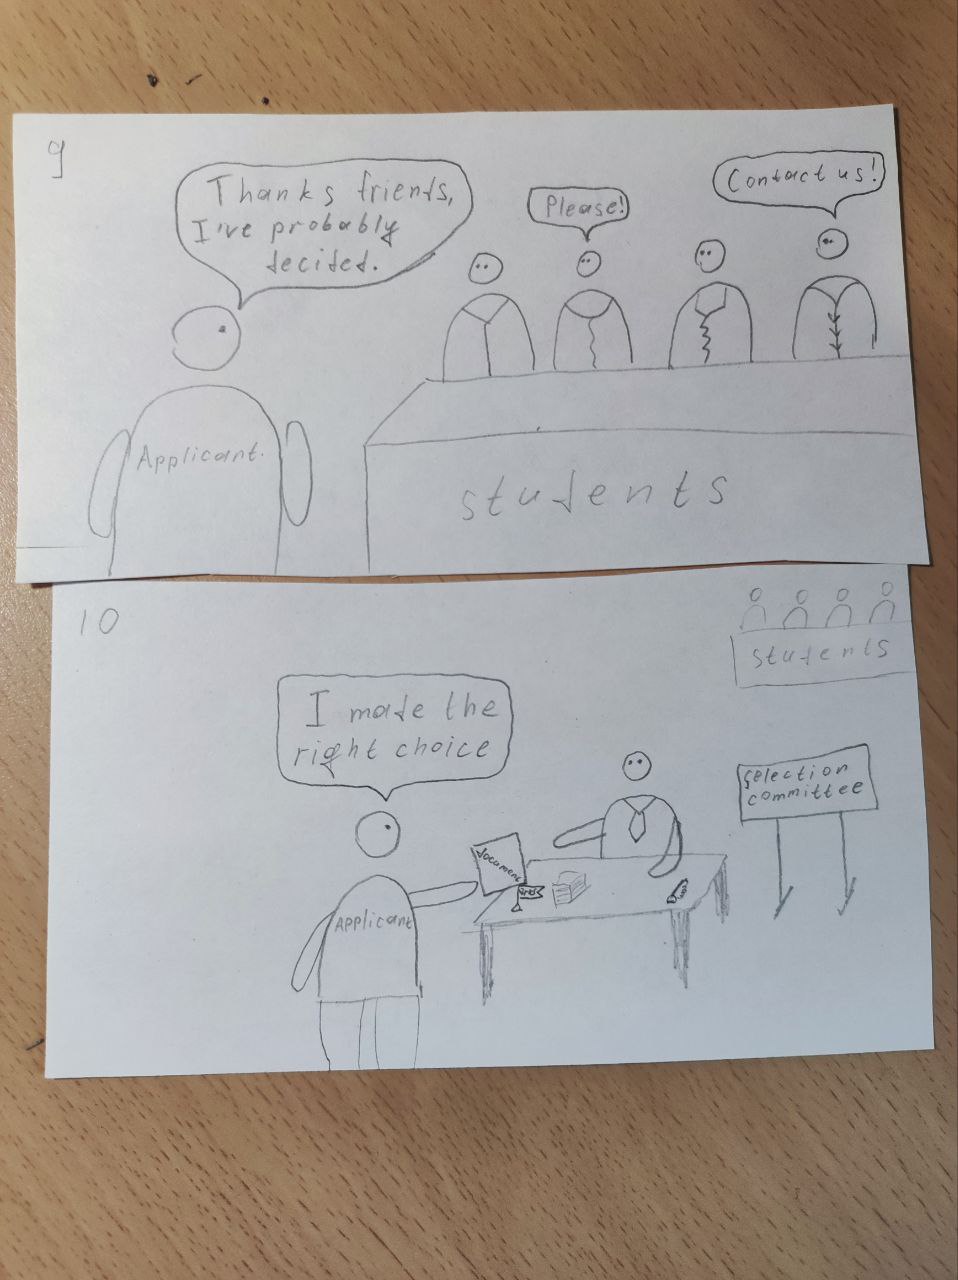 9
Thanks friends,
I've probably
decided.
Please!
Contact us!
Applicant.
students
10
students
I made the
right choice
selection
committee
document
Applicant